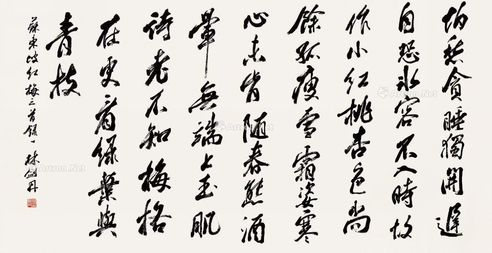 怕愁貪睡獨開遲
自恐冰容不入時故
作小紅桃杏色尚
餘孤瘦雪霜姿寒
心未肯隨春態酒
暈無端上玉肌
詩老不知梅格
在更看綠葉與
青枝
蘇東坡紅梅三首錄一林劍丹